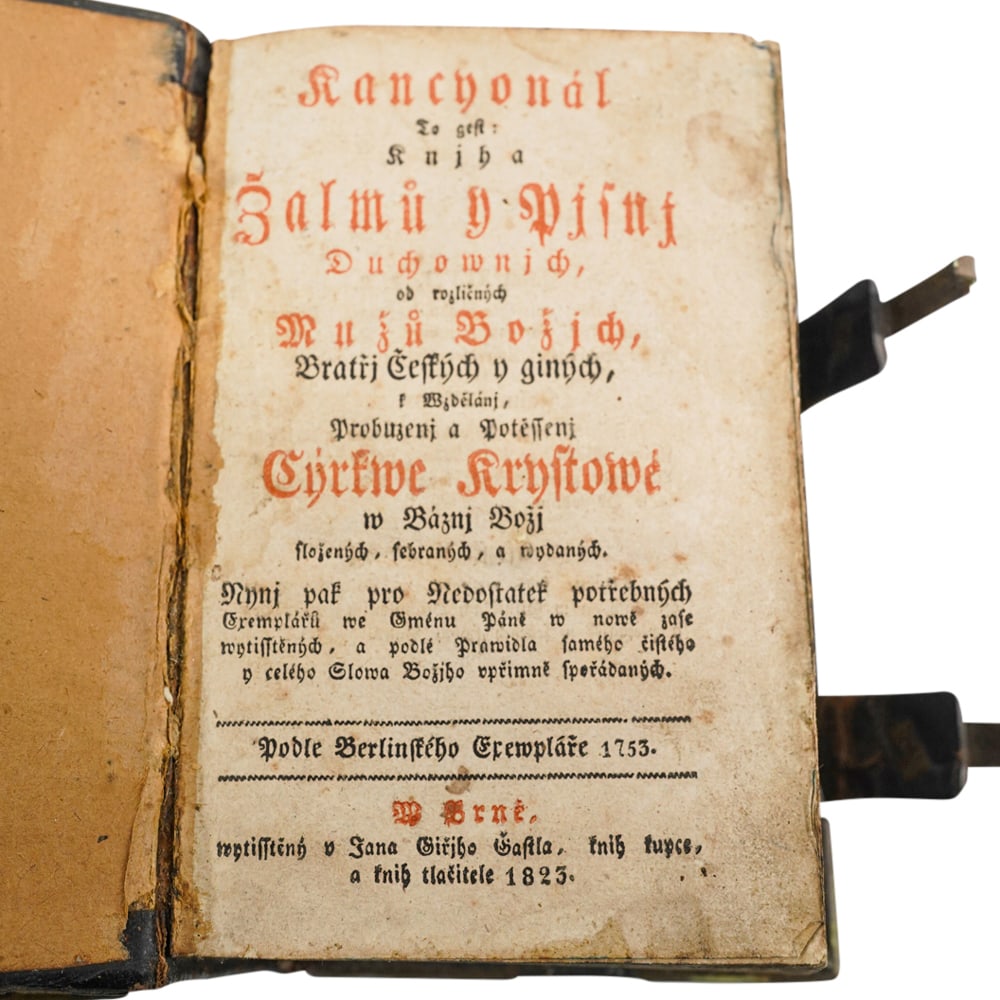 Kancyonál
To gest:
Knjha
Žalmů y Pjsnj
Duchownjch,
od rozličných
Mužů Božjch,
Bratřj Českých y giných,
k Wzdělánj,
Probuzenj a Potěssenj
Cýrkwe Krystowé
w Báznj Božj
složených, sebraných, a wydaných.
Nynj pak pro Nedostatek potřebných
Exemplářů we Gménu Páně w nowě zase
wytisstěných, a podlé Prawidla samého čistého
y celého Slowa Božjho vpřimně spořádaných.
Podle Berlinského Exewpláře 1753.
W Brně,
wytisstěný v Jana Giřjho Gastla, knih kupce,
a knih tlačitele 1823.